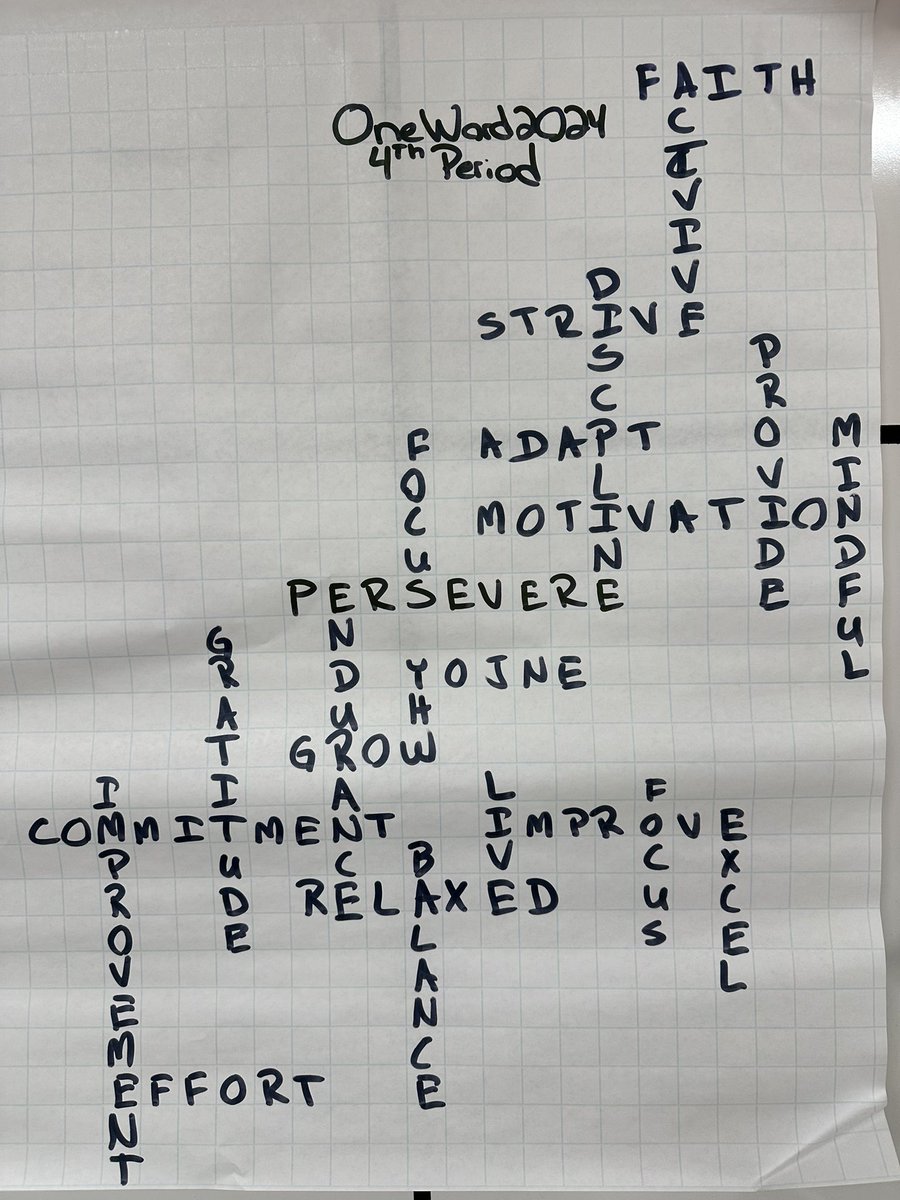 FAITH
OneWord2024
4th Period
DISCPLINE
STRIVE
PROVIDE
MINDFUL
FOCUS
ADAPT
MOTIVATION
PERSEVERE
ENDURANCE
GRATITUDE
YHW
YOJNE
GROW
IMPROVEMENT
LIVE
FOCUS
COMMITMENT
IMPROVE
EXCEL
BALANCE
RELAXED
EFFORT